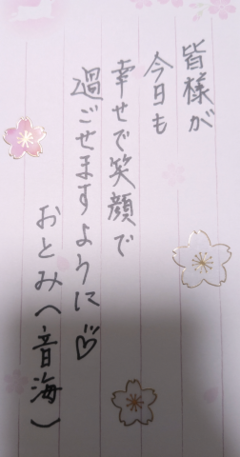 皆様が
今日も
幸せで笑顔で
過ごせますように♡
おとみ(音海)